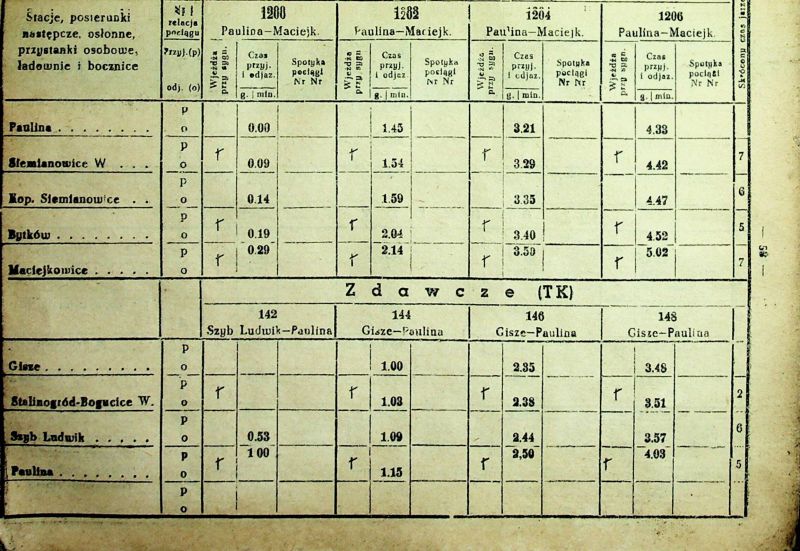 Stacje, posterunki
następcze, osłonne,
przystanki osobowe,
ładownie i bocznice
Nr i
relacja
pociągu
Przyj.(p)
odj. (o)
1200
Paulina—Maciejk.
1202
Paulina—Maciejk.
1204
Paulina—Maciejk.
1206
Paulina—Maciejk.
Wjeżdża przy sygn.
Czas przyj. i odjaz.
g. | min.
Spotyka pociągi Nr Nr
Wjeżdża przy sygn.
Czas przyj. i odjaz.
g. | min.
Spotyka pociągi Nr Nr
Wjeżdża przy sygn.
Czas przyj. i odjaz.
g. | min.
Spotyka pociągi Nr Nr
Wjeżdża przy sygn.
Czas przyj. i odjaz.
g. | min.
Spotyka pociągi Nr Nr
Skrócony czas
p
Paulina . . . . . . . . o 0.00 1.45 3.21 4.33
p
Siemianowice W . . . o 0.09 1.54 3.29 4.42 7
p
Kop. Siemianowice . . o 0.14 1.59 3.35 4.47 6
p
Bytków . . . . . . . . o 0.19 2.04 3.40 4.52 5
p 0.29 2.14 3.50 5.02
Maciejkowice . . . . . o 7
— 58 —
Zdawcze (TK)
142
Szyb Ludwik—Paulina
144
Gisze—Paulina
146
Gisze—Paulina
148
Gisze—Paulina
p
Gisze . . . . . . . . . o 1.00 2.35 3.48
p
Stalinogród-Bogucice W. o 1.03 2.38 3.51 2
p
Szyb Ludwik . . . . . o 0.53 1.09 2.44 3.57 6
p 1 00 2,50 4.03
Paulina . . . . . . . . o 1.15 5
p
o